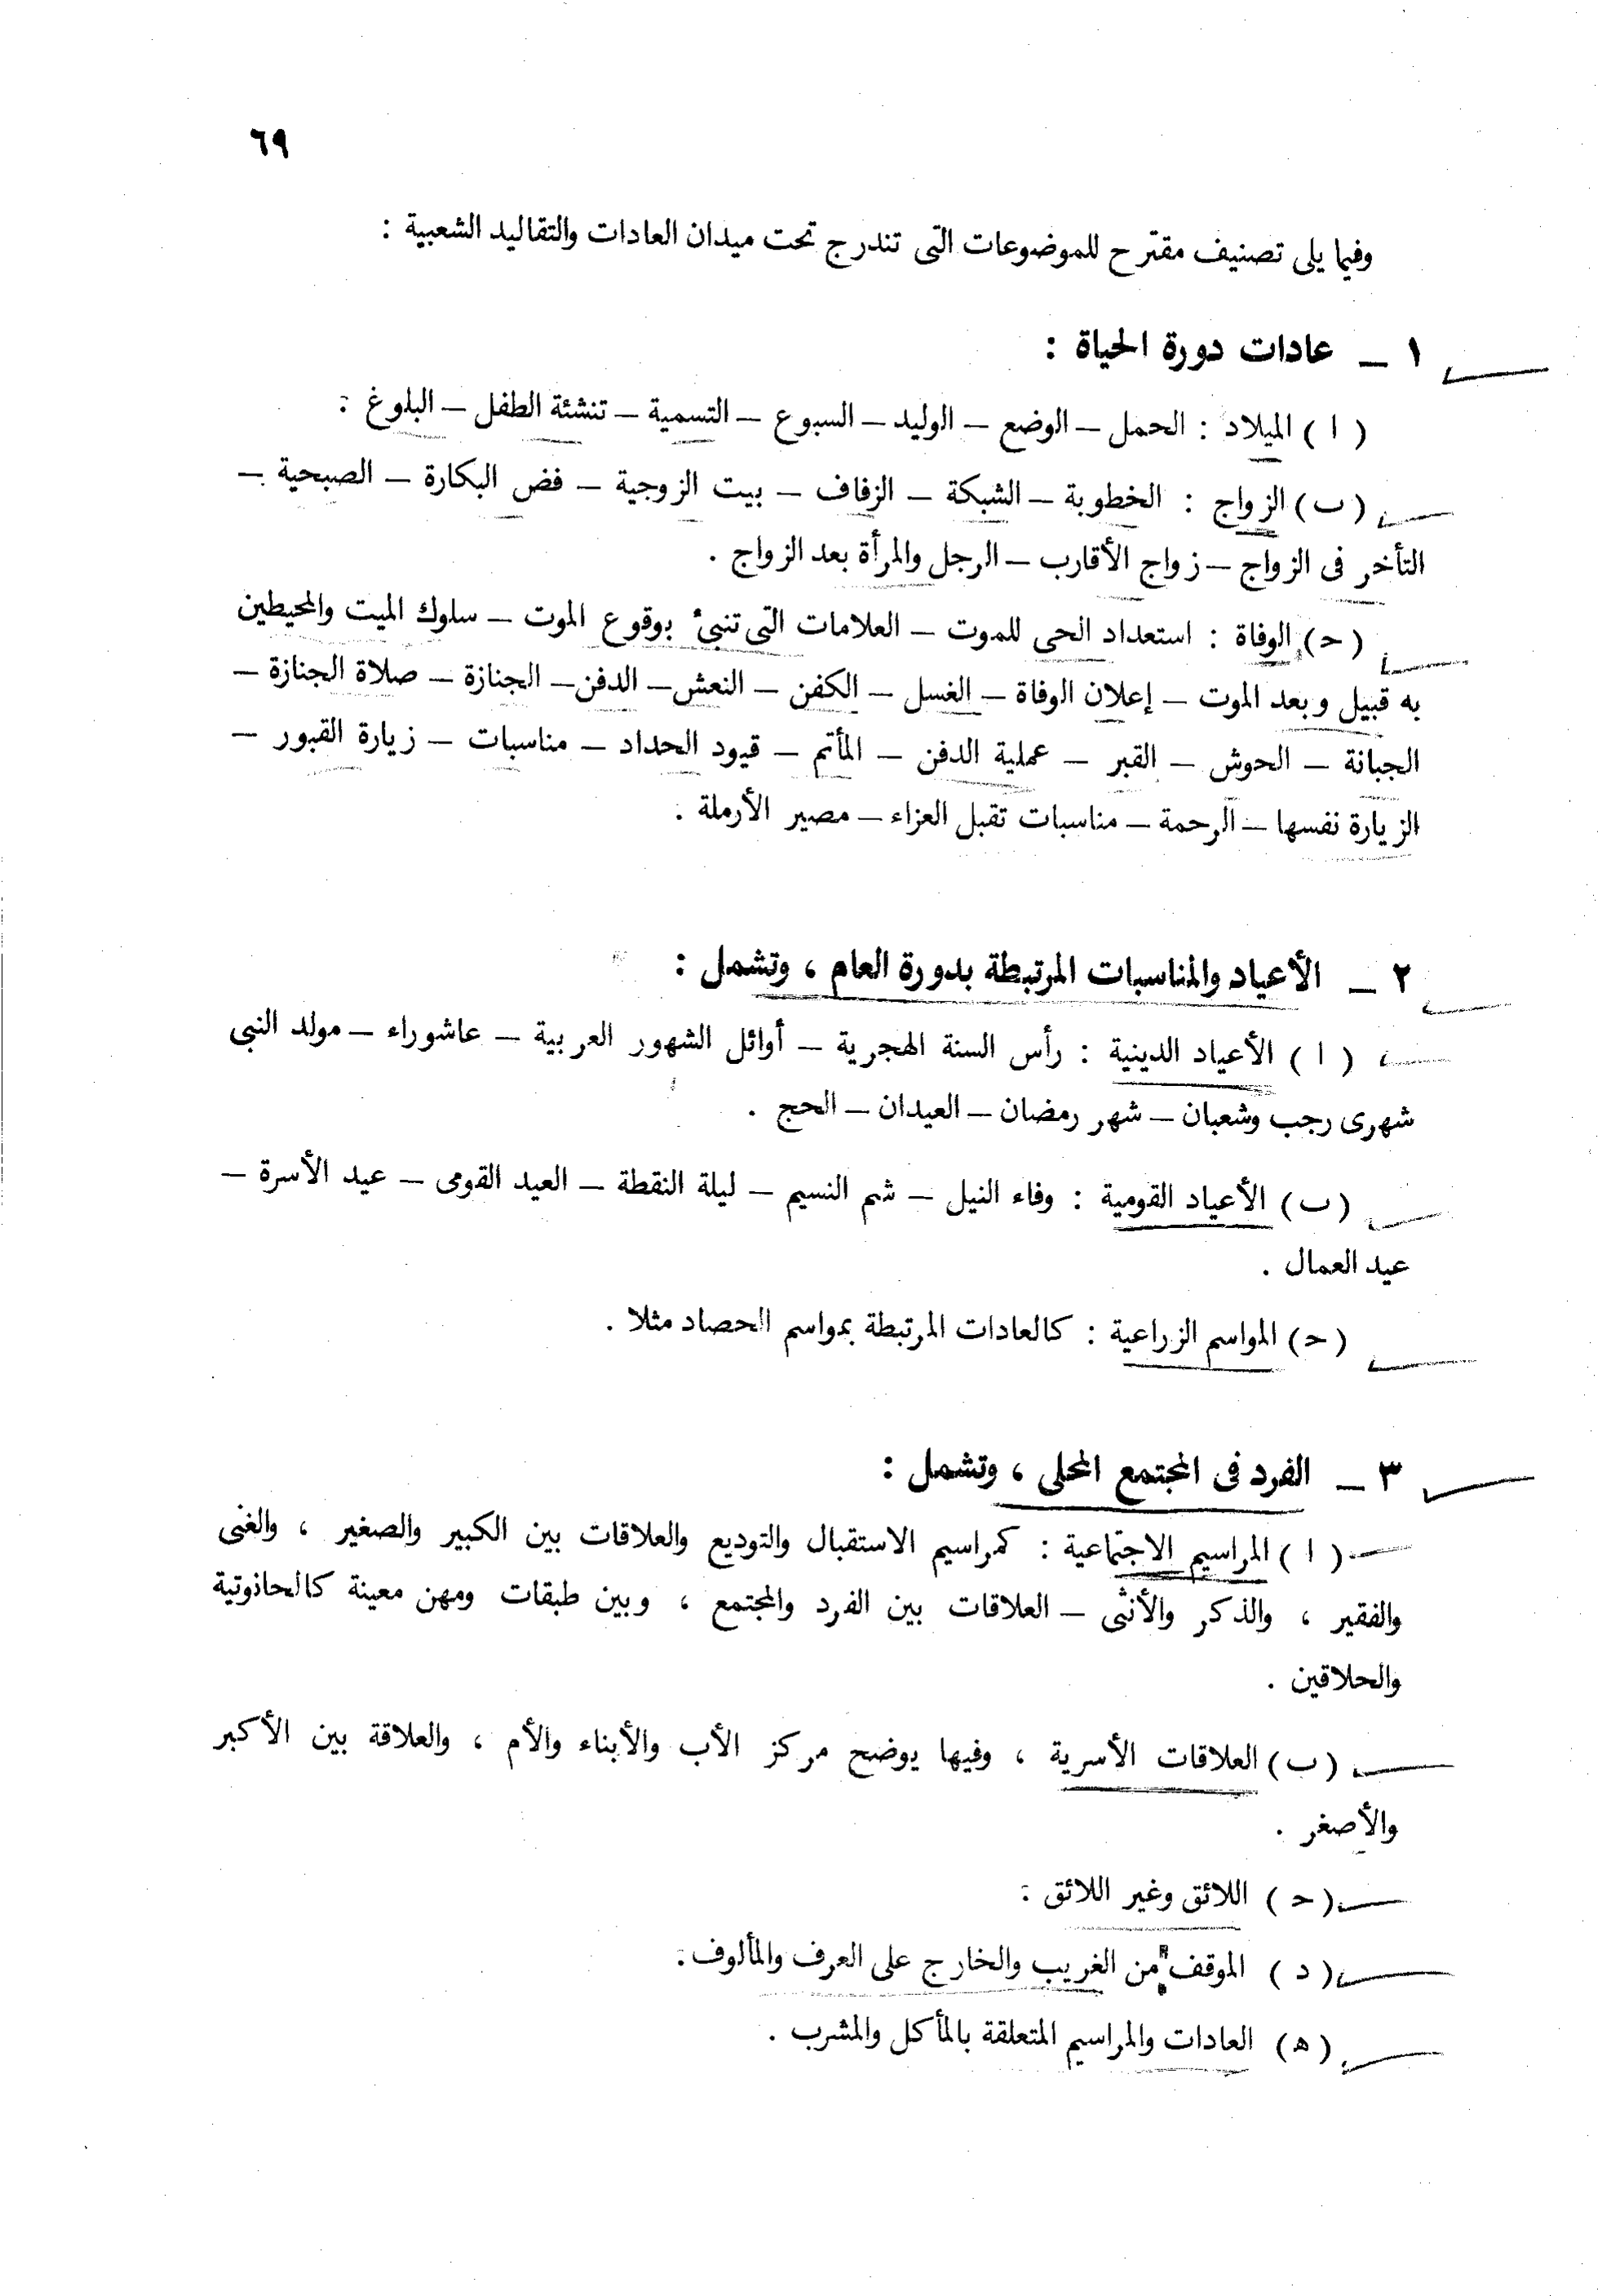 ٦٩
وفيما يلى تصنيف مقترح للموضوعات التى تندرج تحت ميدان العادات والتقاليد الشعبية :
١ ـ عادات دورة الحياة :
( ا ) الميلاد : الحمل ـ الوضع ـ الوليد ـ السبوع ـ التسمية ـ تنشئة الطفل ـ البلوغ .
( ب ) الزواج : الخطوبة ـ الشبكة ـ الزفاف ـ بيت الزوجية ـ فض البكارة ـ الصبحية ـ
التأخر فى الزواج ـ زواج الأقارب ـ الرجل والمرأة بعد الزواج .
( حـ ) الوفاة : استعداد الحى للموت ـ العلامات التى تنبئ بوقوع الموت ـ سلوك الميت والمحيطين
به قبيل وبعد الموت ـ إعلان الوفاة ـ الغسل ـ الكفن ـ النعش ـ الدفن ـ الجنازة ـ صلاة الجنازة ـ
الجبانة ـ الحوش ـ القبر ـ عملية الدفن ـ المأتم ـ قيود الحداد ـ مناسبات ـ زيارة القبور ـ
الزيارة نفسها ـ الرحمة ـ مناسبات تقبل العزاء ـ مصير الأرملة .
٢ ـ الأعياد والمناسبات المرتبطة بدورة العام ، وتشمل :
( ا ) الأعياد الدينية : رأس السنة الهجرية ـ أوائل الشهور العربية ـ عاشوراء ـ مولد النبى
شهرى رجب وشعبان ـ شهر رمضان ـ العيدان ـ الحج .
( ب ) الأعياد القومية : وفاء النيل ـ شم النسيم ـ ليلة النقطة ـ العيد القومى ـ عيد الأسرة ـ
عيد العمال .
( حـ ) المواسم الزراعية : كالعادات المرتبطة بمواسم الحصاد مثلا .
٣ ـ الفرد فى المجتمع المحلى ، وتشمل :
( ا ) المراسيم الاجتماعية : كمراسيم الاستقبال والتوديع والعلاقات بين الكبير والصغير ، والغنى
والفقير ، والذكر والأنثى ـ العلاقات بين الفرد والمجتمع ، وبين طبقات ومهن معينة كالحاذوتية
والحلاقين .
( ب ) العلاقات الأسرية ، وفيها يوضح مركز الأب والأبناء والأم ، والعلاقة بين الأكبر
والأصغر .
( حـ ) اللائق وغير اللائق .
( د ) الموقف من الغريب والخارج على العرف والمألوف .
( ه ) العادات والمراسيم المتعلقة بالمأكل والمشرب .